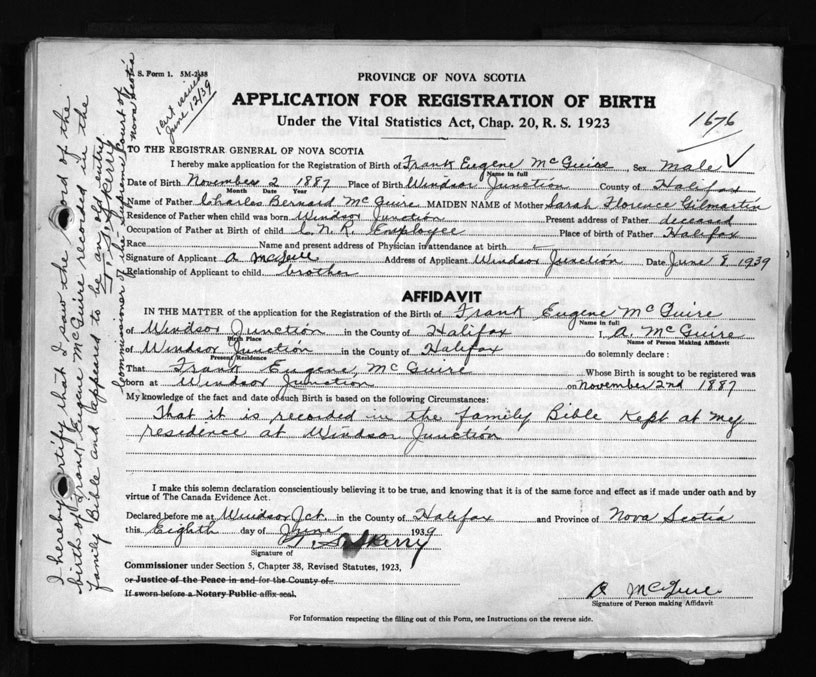 S. Form 1. 5M-2-38
PROVINCE OF NOVA SCOTIA
APPLICATION FOR REGISTRATION OF BIRTH
Under the Vital Statistics Act, Chap. 20, R. S. 1923
1676
issued
June 12/39
TO THE REGISTRAR GENERAL OF NOVA SCOTIA
I hereby make application for the Registration of Birth of Frank Eugene McGuire, Sex Male
Name in full
Date of Birth November 2 1887 Place of Birth Windsor Junction County of Halifax
Month Date Year
Name of Father Charles Bernard McGuire MAIDEN NAME of Mother Sarah Florence Gilmartin
Residence of Father when child was born Windsor Junction Present address of Father deceased
Occupation of Father at Birth of child C.N.R. Employee Place of birth of Father Halifax
Race Name and present address of Physician in attendance at birth
Signature of Applicant A McGuire Address of Applicant Windsor Junction Date June 8 1939
Relationship of Applicant to child brother
AFFIDAVIT
IN THE MATTER of the application for the Registration of the Birth of Frank Eugene McGuire
Name in full
of Windsor Junction in the County of Halifax I, A. McGuire
Birth Place Name of Person Making Affidavit
of Windsor Junction in the County of Halifax do solemnly declare :
Present Residence
That Frank Eugene McGuire Whose Birth is sought to be registered was
born at Windsor Junction on November 2nd 1887
My knowledge of the fact and date of such Birth is based on the following Circumstances:
That it is recorded in the family Bible Kept at my
residence at Windsor Junction
I make this solemn declaration conscientiously believing it to be true, and knowing that it is of the same force and effect as if made under oath and by
virtue of The Canada Evidence Act.
Declared before me at Windsor Jct. in the County of Halifax and Province of Nova Scotia
this Eighth day of June 1939
Skerry
Signature of
Commissioner under Section 5, Chapter 38, Revised Statutes, 1923,
or Justice of the Peace in and for the County of
If sworn before a Notary Public affix seal.
A McGuire
Signature of Person making Affidavit
For Information respecting the filling out of this Form, see Instructions on the reverse side.
I hereby certify that I saw the record of the
birth of Frank Eugene McGuire recorded in the
family Bible and appeared to be an old entry
T. S. Skerry
Commissioner of the Supreme Court of
Nova Scotia